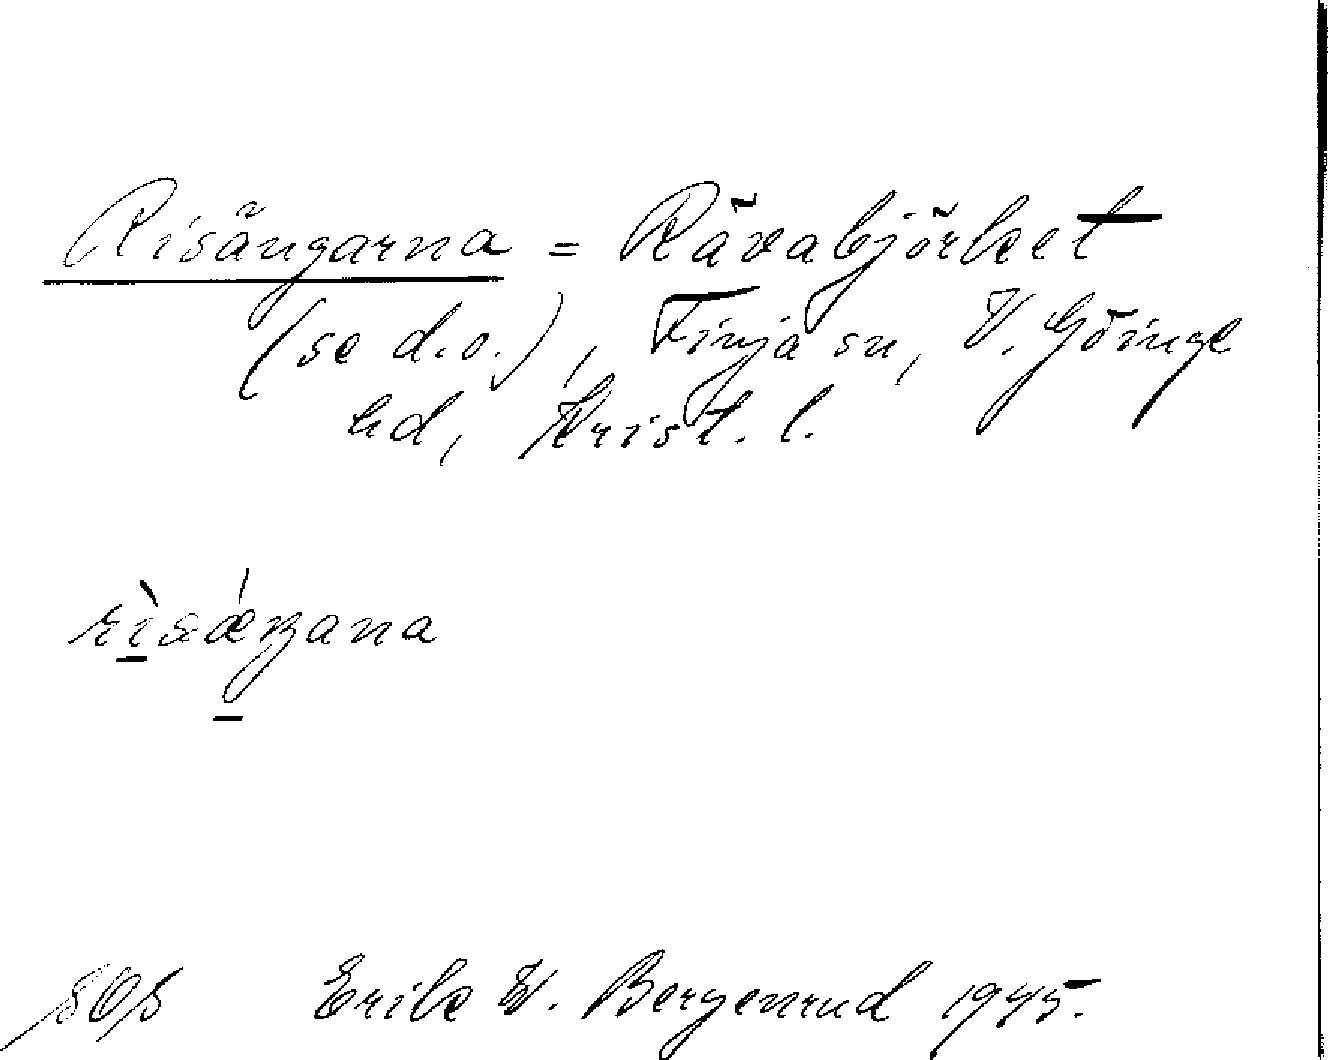 Risängarna = Rävabjörket
(se d.o.), Finja sn, V. Göinge
hd, Krist. l.
rìsǽŋana
Erik W. Bergenrud 1945.